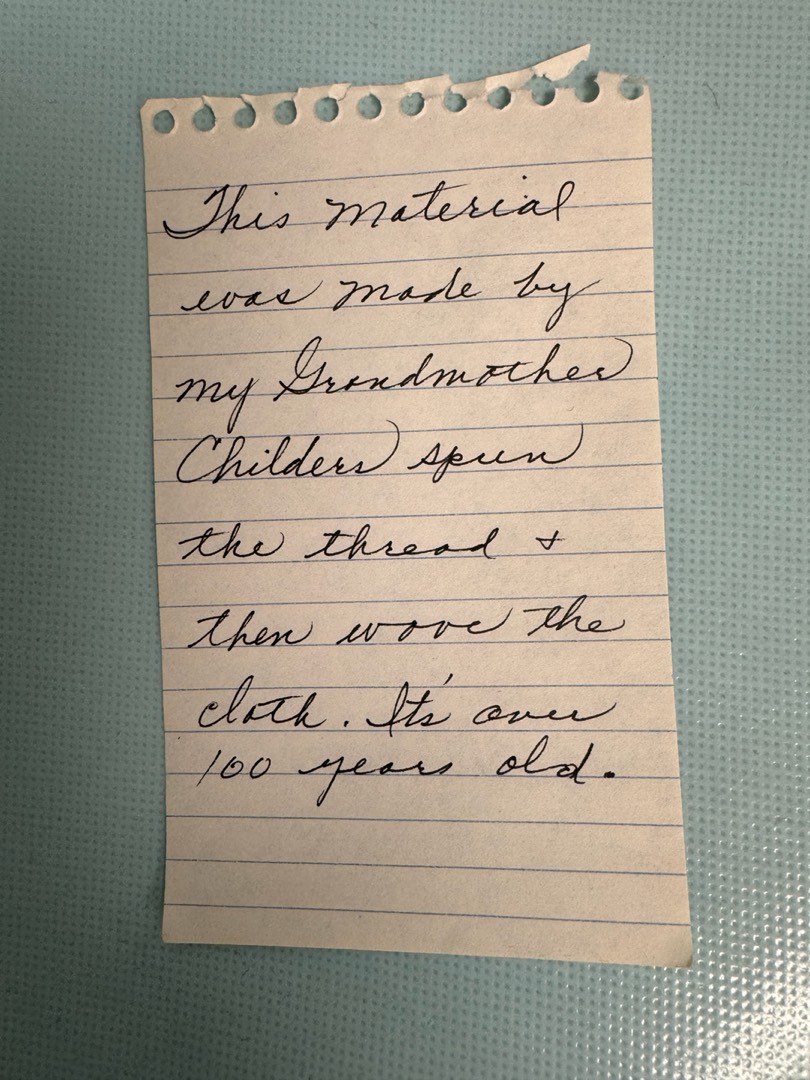 This material
was made by
my Grandmother
Childers spun
the thread +
then wove the
cloth. It's over
100 years old.